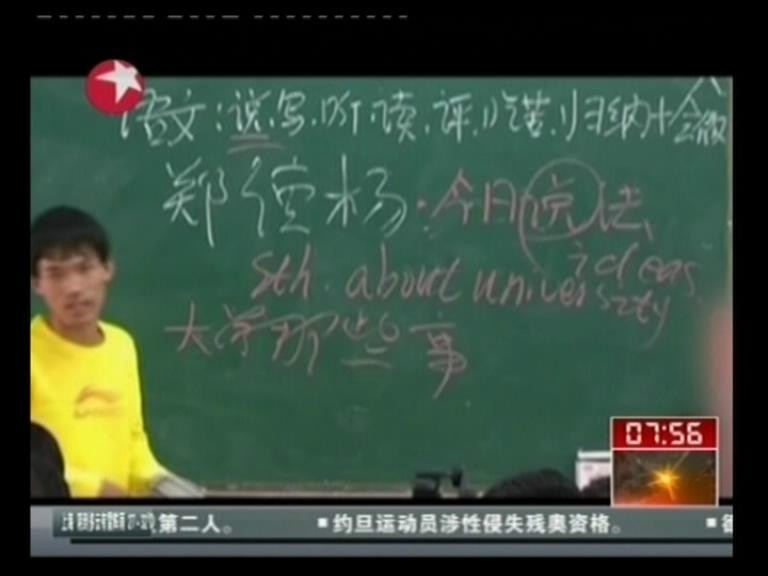 语文：说.写.听.读.评.吃苦.归纳十会微
郑德杨·今日说法
ideas
sth. about university
大学那些事
07:56
第二人。 ■约旦运动员涉性侵失残奥资格。 ■